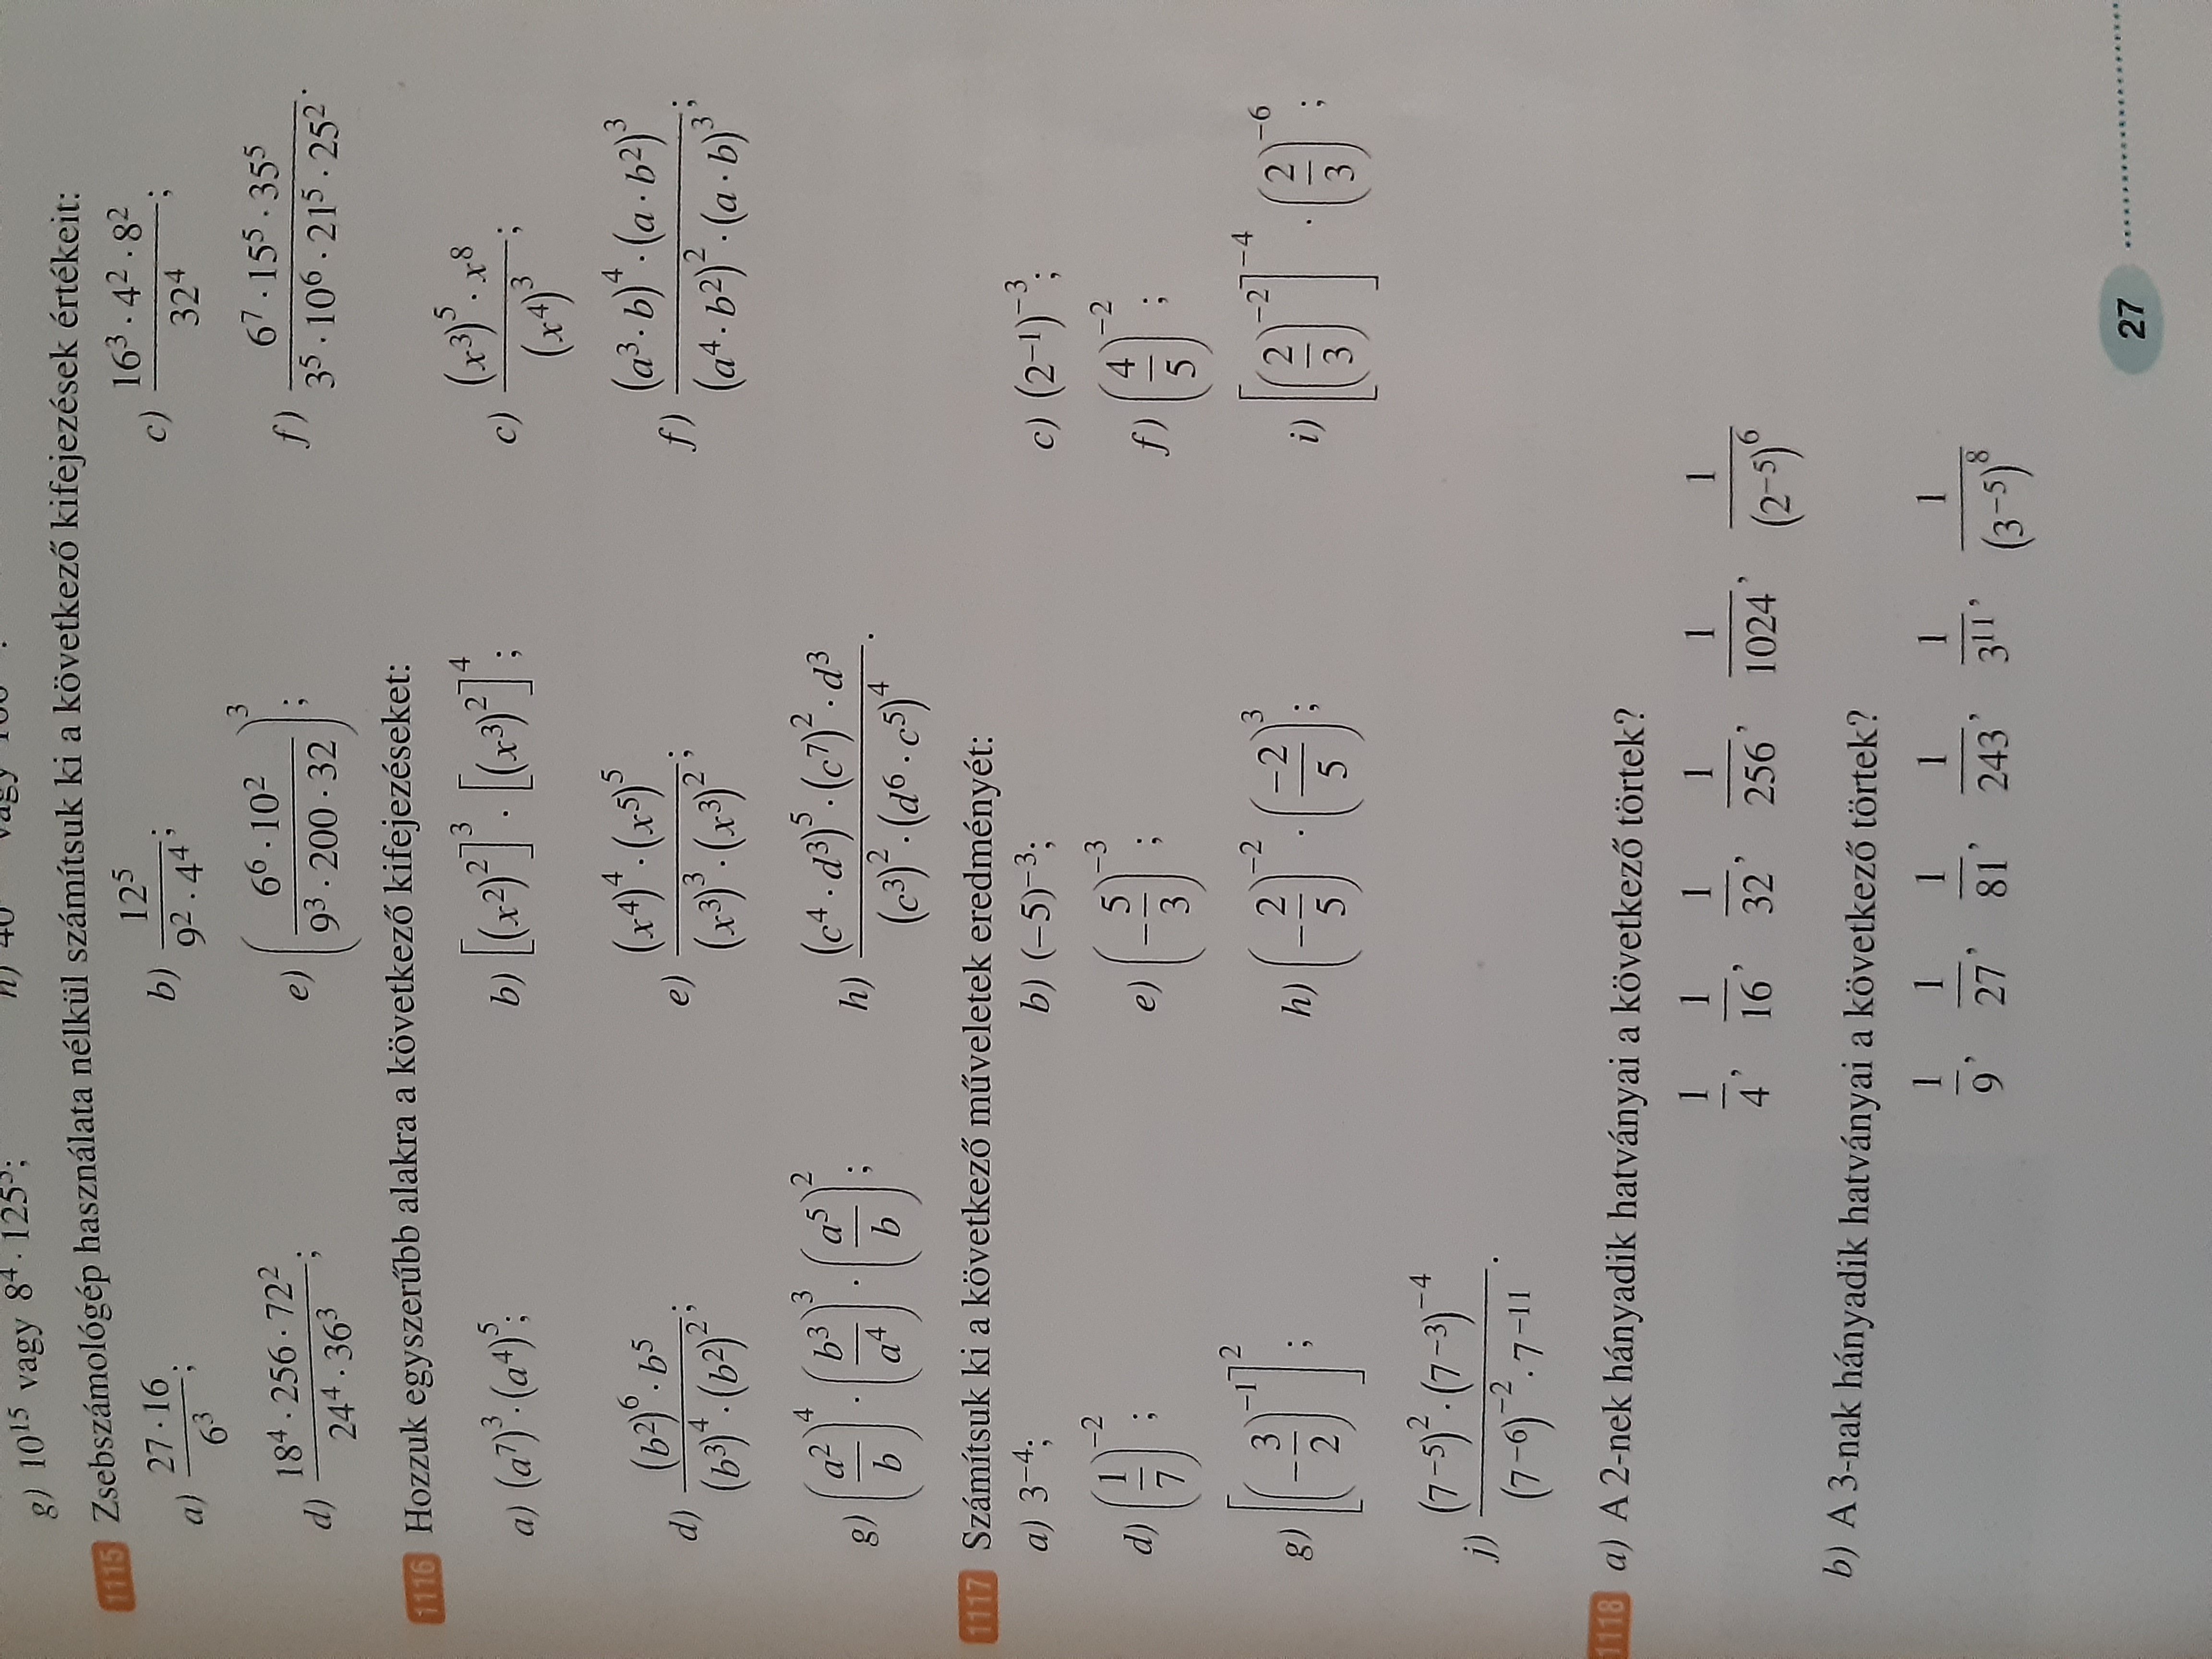 g) 10¹⁵ vagy 8⁴ · 125⁵;
1115 Zsebszámológép használata nélkül számítsuk ki a következő kifejezések értékeit:
a) (27 · 16)/6³; b) 12⁵/(9² · 4⁴); c) (16³ · 4² · 8²)/32⁴;
d) (18⁴ · 256 · 72²)/(24⁴ · 36³); e) ((6⁶ · 10²)/(9³ · 200 · 32))³; f) (6⁷ · 15⁵ · 35⁵)/(3⁵ · 10⁶ · 21⁵ · 25²).
1116 Hozzuk egyszerűbb alakra a következő kifejezéseket:
a) (a⁷)³ · (a⁴)⁵; b) [(x²)²]³ · [(x³)²]⁴; c) ((x³)⁵ · x⁸)/(x⁴)³;
d) ((b²)⁶ · b⁵)/((b³)⁴ · (b²)²); e) ((x⁴)⁴ · (x⁵)⁵)/((x³)³ · (x³)²); f) ((a³ · b)⁴ · (a · b²)³)/((a⁴ · b²)² · (a · b)³);
g) (a²/b)⁴ · (b³/a⁴)³ · (a⁵/b)²; h) ((c⁴ · d³)⁵ · (c⁷)² · d³)/((c³)² · (d⁶ · c⁵)⁴).
1117 Számítsuk ki a következő műveletek eredményét:
a) 3⁻⁴; b) (−5)⁻³; c) (2⁻¹)⁻³;
d) (1/7)⁻²; e) (−5/3)⁻³; f) (4/5)⁻²;
g) [(−3/2)⁻¹]²; h) (−2/5)⁻² · (−2/5)³; i) [(2/3)⁻²]⁻⁴ · (2/3)⁻⁶;
j) ((7⁻⁵)² · (7⁻³)⁻⁴)/((7⁻⁶)⁻² · 7⁻¹¹).
1118 a) A 2-nek hányadik hatványai a következő törtek?
1/4, 1/16, 1/32, 1/256, 1/1024, 1/(2⁻⁵)⁶
b) A 3-nak hányadik hatványai a következő törtek?
1/9, 1/27, 1/81, 1/243, 1/3¹¹, 1/(3⁻⁵)⁸
27